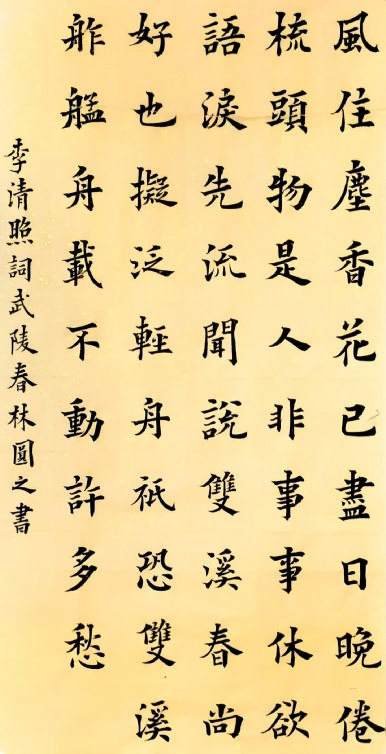 風住塵香花已盡日晚倦
梳頭物是人非事事休欲
語淚先流聞說雙溪春尚
好也擬泛輕舟祇恐雙溪
舴艋舟載不動許多愁
李清照詞武陵春林圓之書